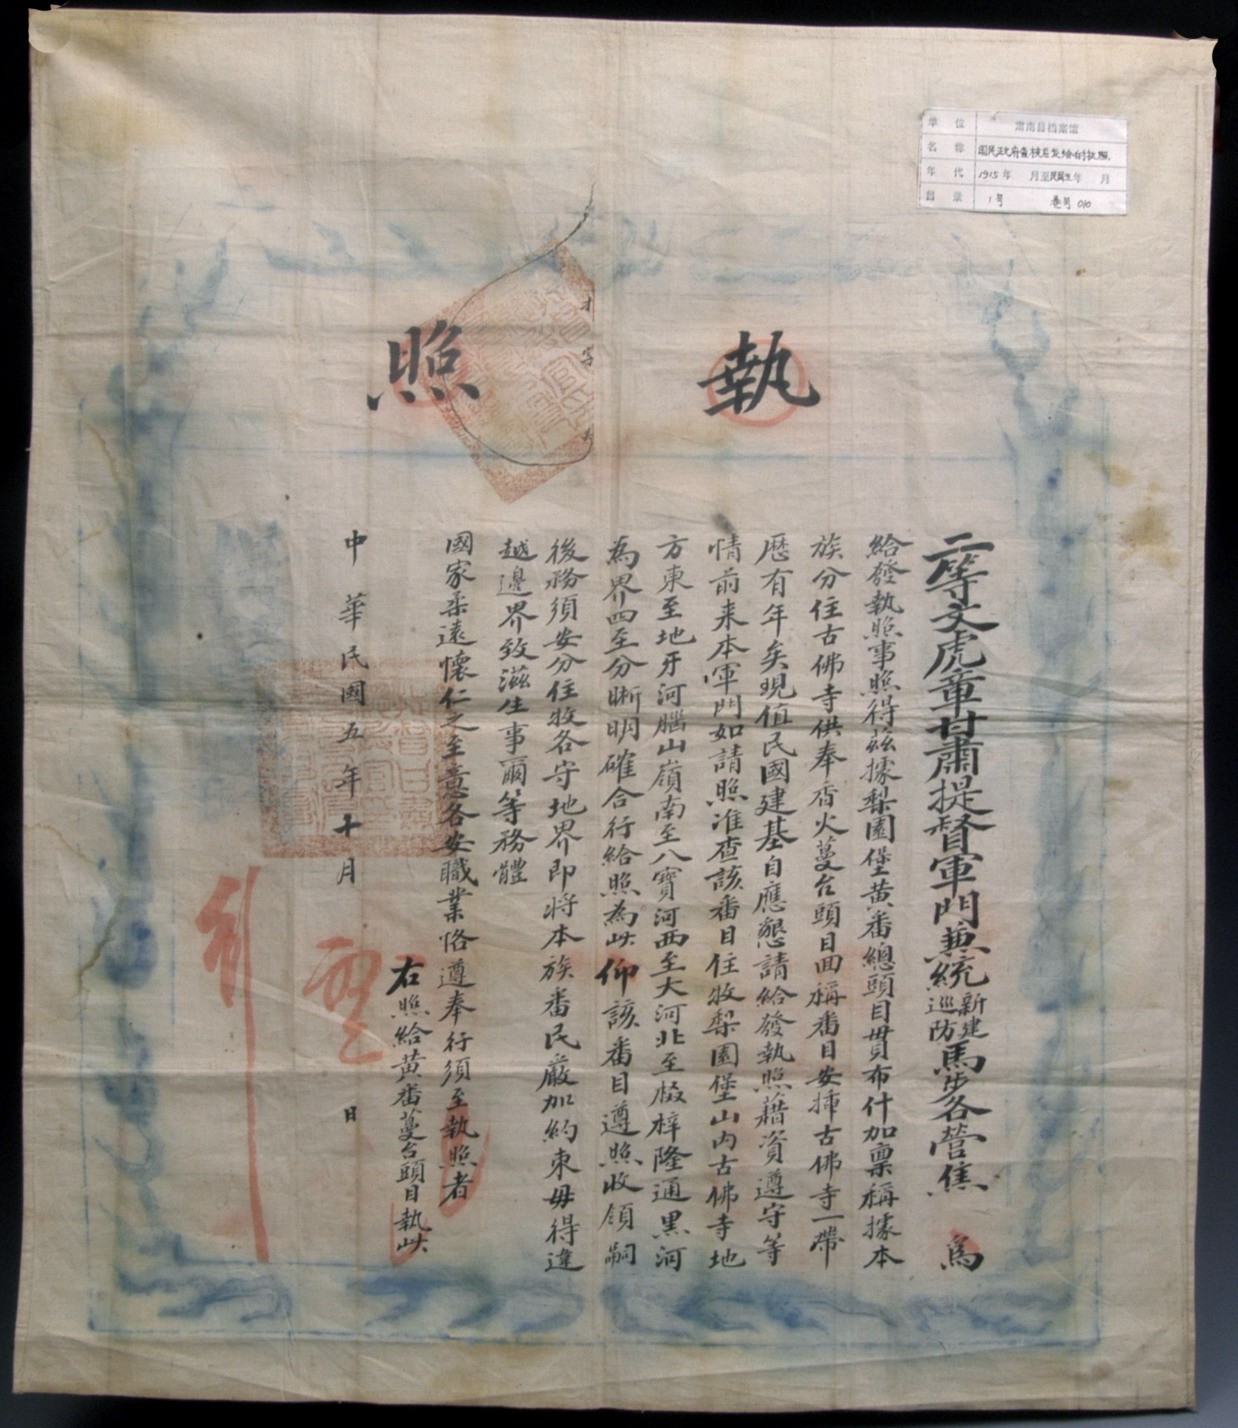 單位 肅南县档案馆
名称
年代 1915年 月至民国五年 月
目录 1号 卷号 010
執照
字
二等文虎章甘肅提督軍門兼統新建巡防馬步各營焦 為
給發執照事照得茲據梨園堡黃番總頭目貫布什加稟稱據本
族分住古佛寺供奉香火蔓台頭目回稱番目安插古佛寺一帶
歷有年矣現值民國建基自應懇請給發執照藉資遵守等
情前来本軍門如請照准查該番目住牧梨園堡山内古佛寺地
方東至地牙河腦山嶺南至八寶河西至大河北至牍梓隆通黑河
為界四至分晰明確合行給照為此仰該番目遵照收領嗣
後務須安分住牧各守地界即將本族番民嚴加約束毋得違
越邊界致滋生事爾等務體
國家柔遠懷仁之至意各安職業恪遵奉行須至執照者
右照給黃番蔓台頭目執此
中華民國五年十月 日